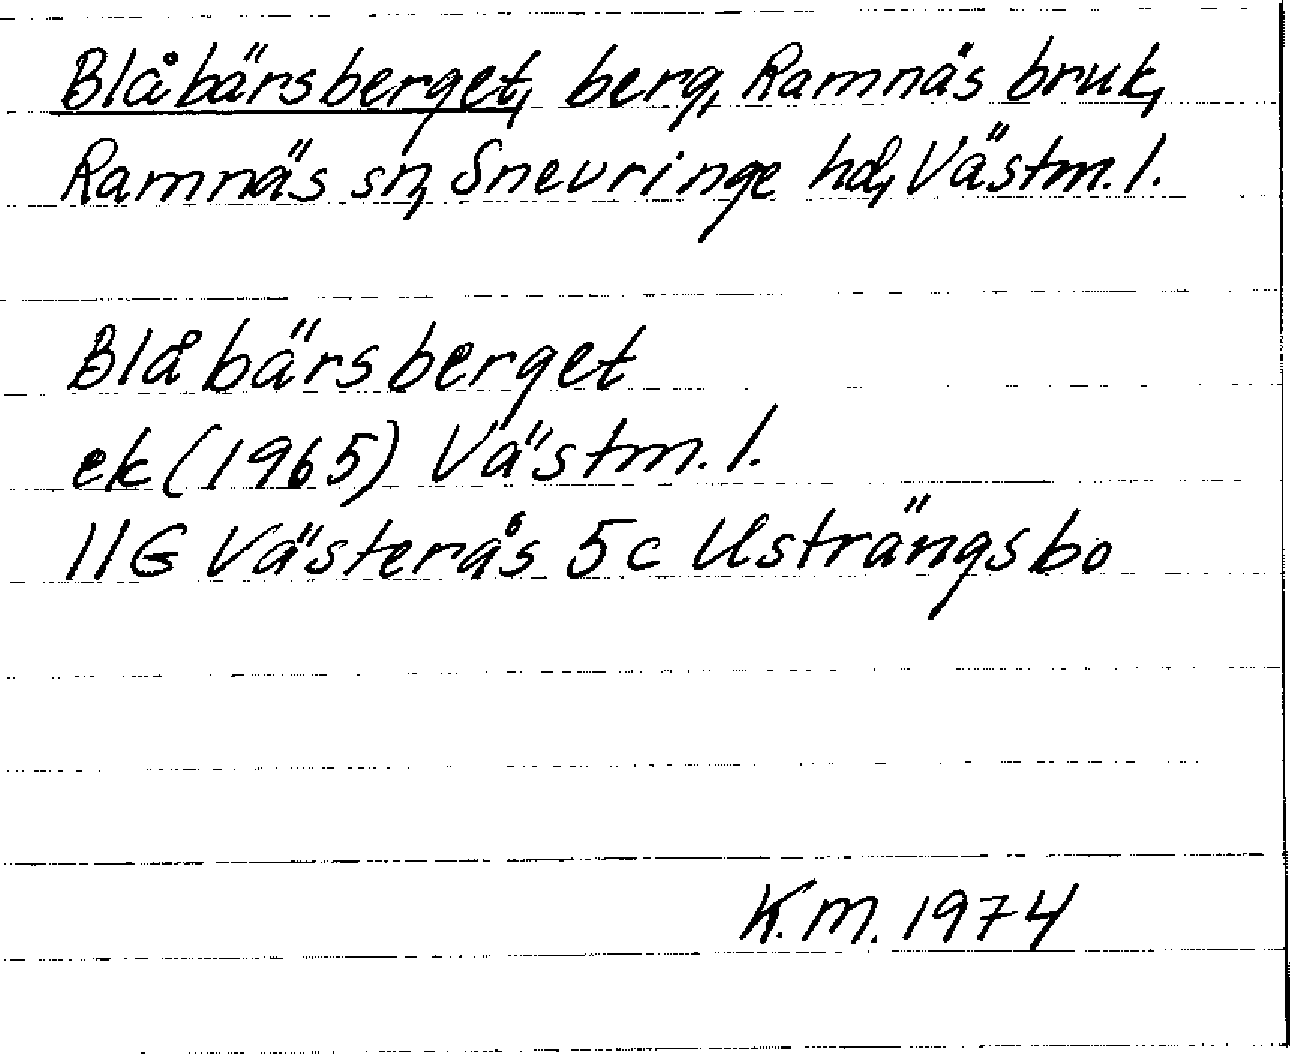 Blåbärsberget, berg, Ramnäs bruk,
Ramnäs sn, Snevringe hd, Västm. l.
Blåbärsberget
ek (1965) Västm. l.
11G Västerås 5c Usträngsbo
K.M. 1974